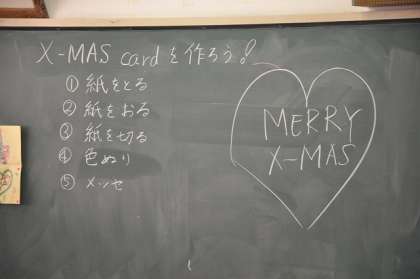 X-MAS cardを作ろう!
① 紙をとる
② 紙をおる
③ 紙を切る
④ 色ぬり
⑤ メッセ
MERRY
X-MAS